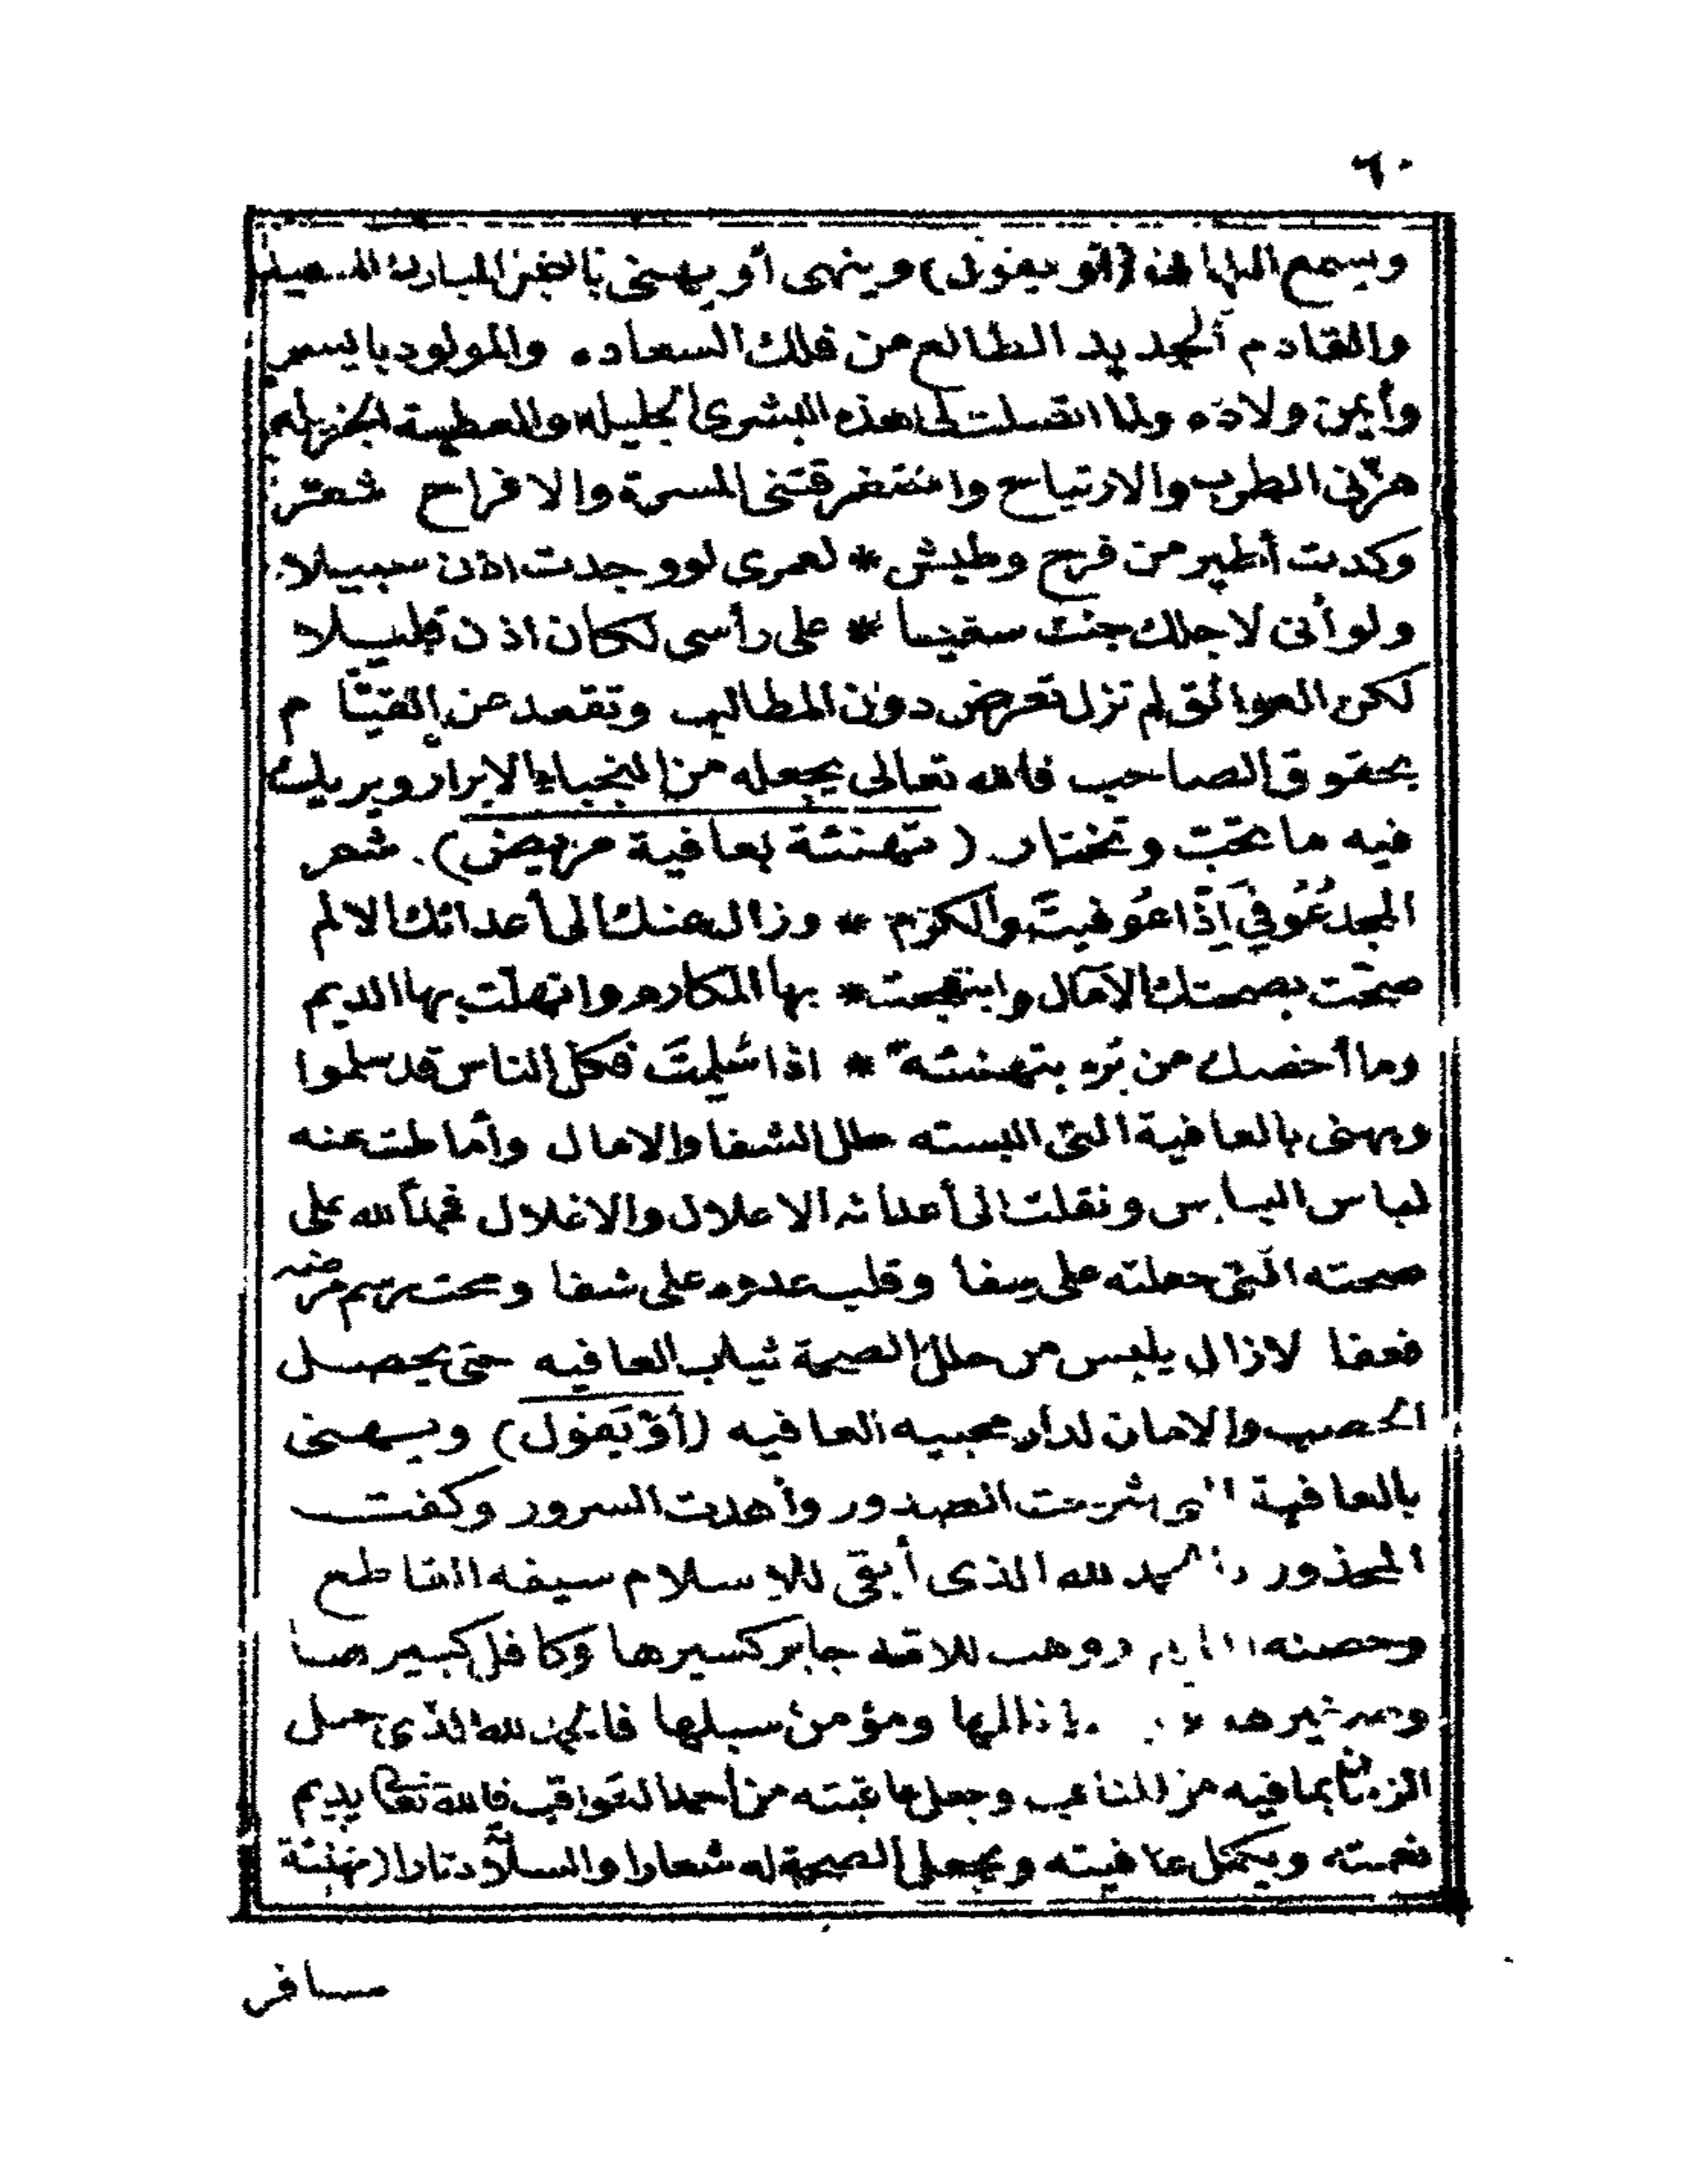 ٦٠
ويسمع الهاهنه (أو يقول) وينهى أو يهنى بالنجل المبارك السعيد
والقادم الجديد الطالع من فلك السعاده والمولود بايسر
وأيمن ولاده ولما اتصلت لى هذه البشرى الجليله والعطية الجزيله
هزنى الطرب والارتياح واستغرقتنى المسرة والافراح شعر
وكدت أطير من فرح وطيش * لعمرى لو وجدت اذن سبيلا
ولو أنى لاجلك جئت سعيا * على رأسى لكان اذن قليلا
لكن العوائق لم تزل تعرض دون المطالب وتقعد عن القيام
بحقوق الصاحب فالله تعالى يجعله من النجباء الابرار ويريك
فيه ما تحب وتختار (تهنئة بعافية مريض) شعر
المجد عُوفِىَ إذا عُوفيتَ والكرم * وزال عنك الى أعدائك الالم
صحت بصحتك الآمال وابتهجت * بها المكارم وانهلت بها الديم
وما أخصك من بُرء بتهنئة * اذا سَلِمتَ فكل الناس قد سلموا
ويهنى بالعافية التى البسته حلل الشفا والامال وأماطت عنه
لباس الباس ونقلت الى أعدائه الاعلال والاغلال فحمدًا لله على
صحته التى جعلته على صفا وقلب عدوه على شفا ومحت رسم مرضه
فعفا لازال يلبس من حلل الصحة ثياب العافيه حتى يحصل
الخصب والامان لدار محبيه العافيه (أو يَقول) ويهنى
بالعافية التى شرحت الصدور وأهدت السرور وكفت
المحذور والحمد لله الذى أبقى للاسلام سيفه القاطع
وحصنه ووهب للامة جابر كسيرها وكافل كبيرها
وصغيرها ومؤمن سبلها فالحمد لله الذى جمل
الزمان بما فيه من المناقب وجعل عاقبته من أحمد العواقب فالله تعالى يديم
نعمته ويكمل عافيته ويجعل الصحة له شعارا والسلامة دثارا (تهنئة
مسافر